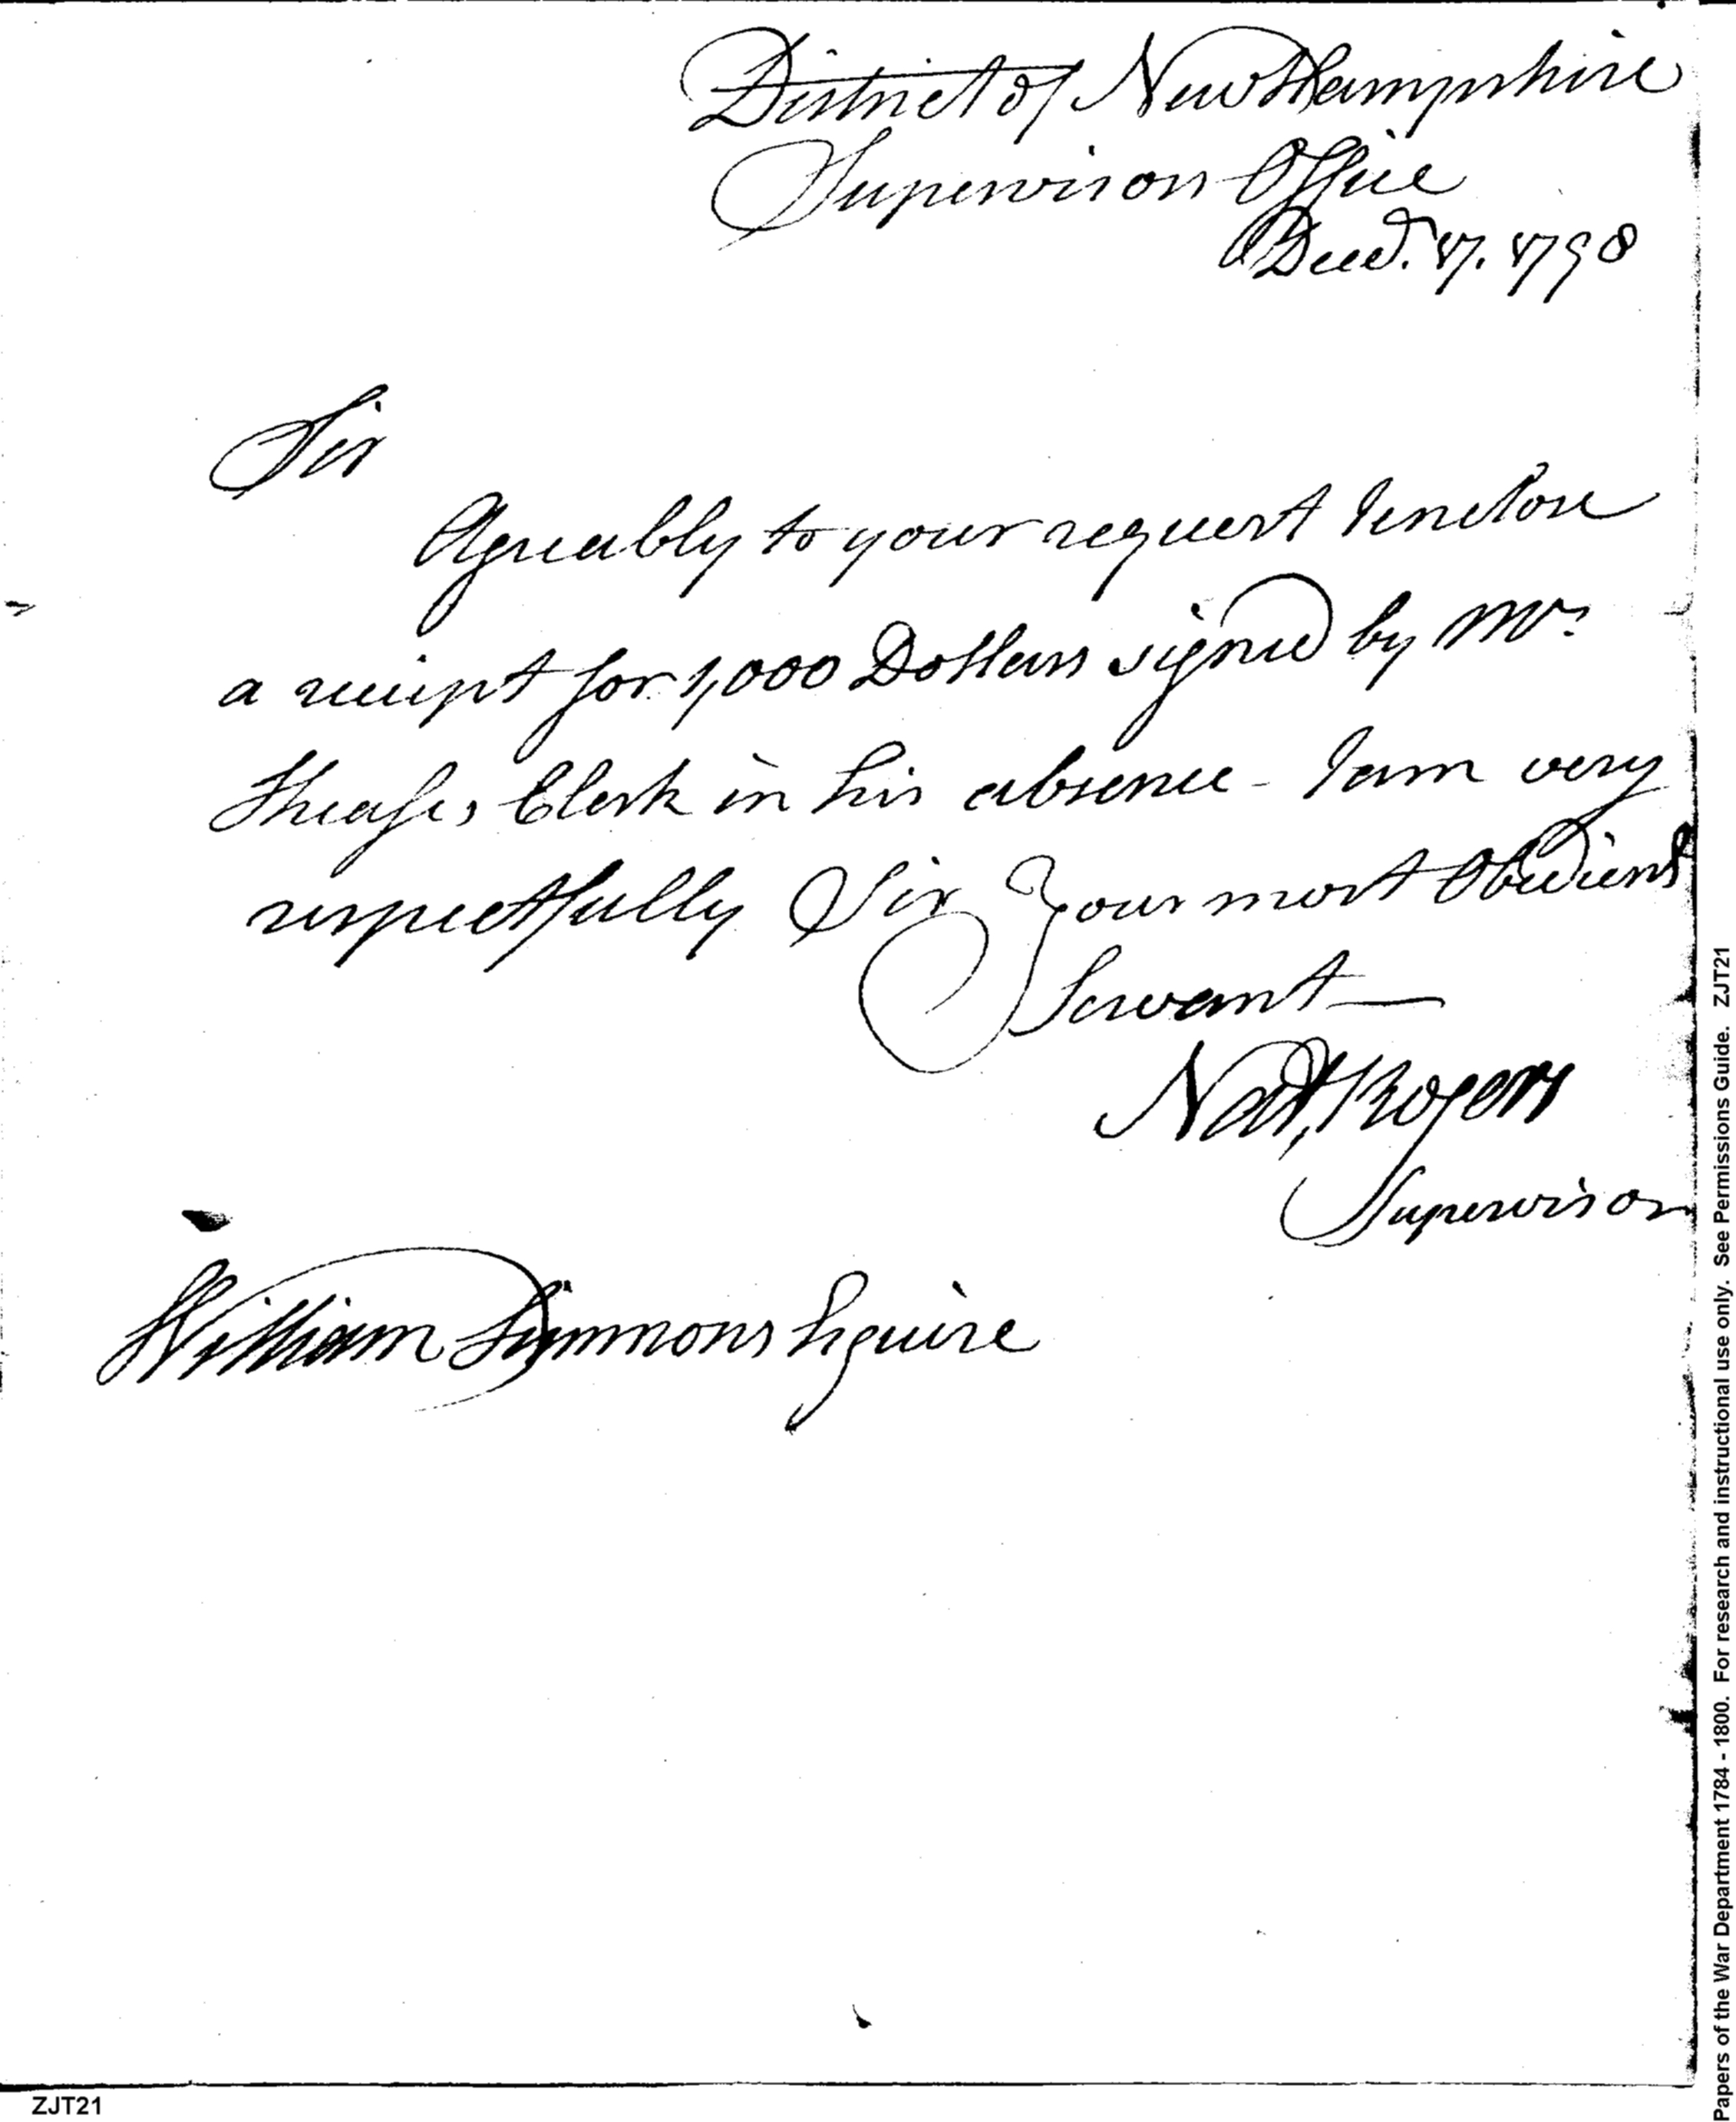 District of New Hampshire
Supervisors Office
Decr. 17. 1798
Sir
Agreably to your request I enclose
a receipt for 1,000 Dollars signed by Mr.
Sheafes Clerk in his absence - I am very
respectfully Sir Your most Obedient
Servant
Natl. Rogers
Supervisor
William Simmons Esquire
ZJT21
Papers of the War Department 1784 - 1800. For research and instructional use only. See Permissions Guide. ZJT21